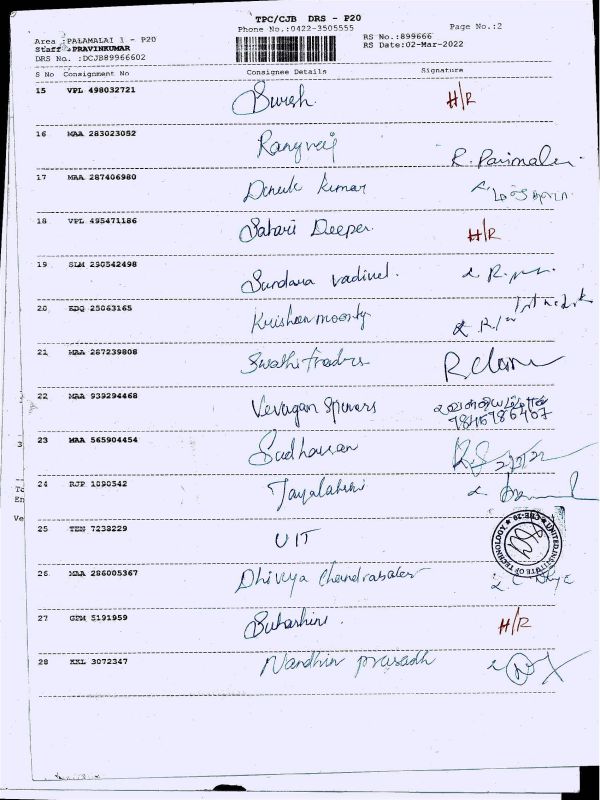 TPC/CJB DRS - P20
Phone No.:0422-3505555 Page No.:2
Area :PALAMALAI 1 - P20 RS No.:899666
Staff :PRAVINKUMAR RS Date:02-Mar-2022
DRS No. :DCJB89966602
S No Consignment No Consignee Details Signature
15 VPL 498032721 Suresh. H/R
16 MAA 283023052 Rangaraj R. Parimala
17 MAA 287406980 Kumar
18 VPL 495471186 Deepa H/R
19 SLM 290542498 Sundara vadivel.
20 EDQ 25063165 Krishnamoorty
21 MAA 287239808 Swathi traders
22 MAA 939294468 Vevagan Spinners
7845786467
23 MAA 565904454 Sudharsan
24 RJP 1090542
25 TEN 7238229 UIT UNITED INSTITUTE OF TECHNOLOGY CBE-20
26 MAA 286005367 Dhivya Chandrasekar
27 GPM 5191959 Subashini. H/R
28 KKL 3072347 Nandhin prasadh